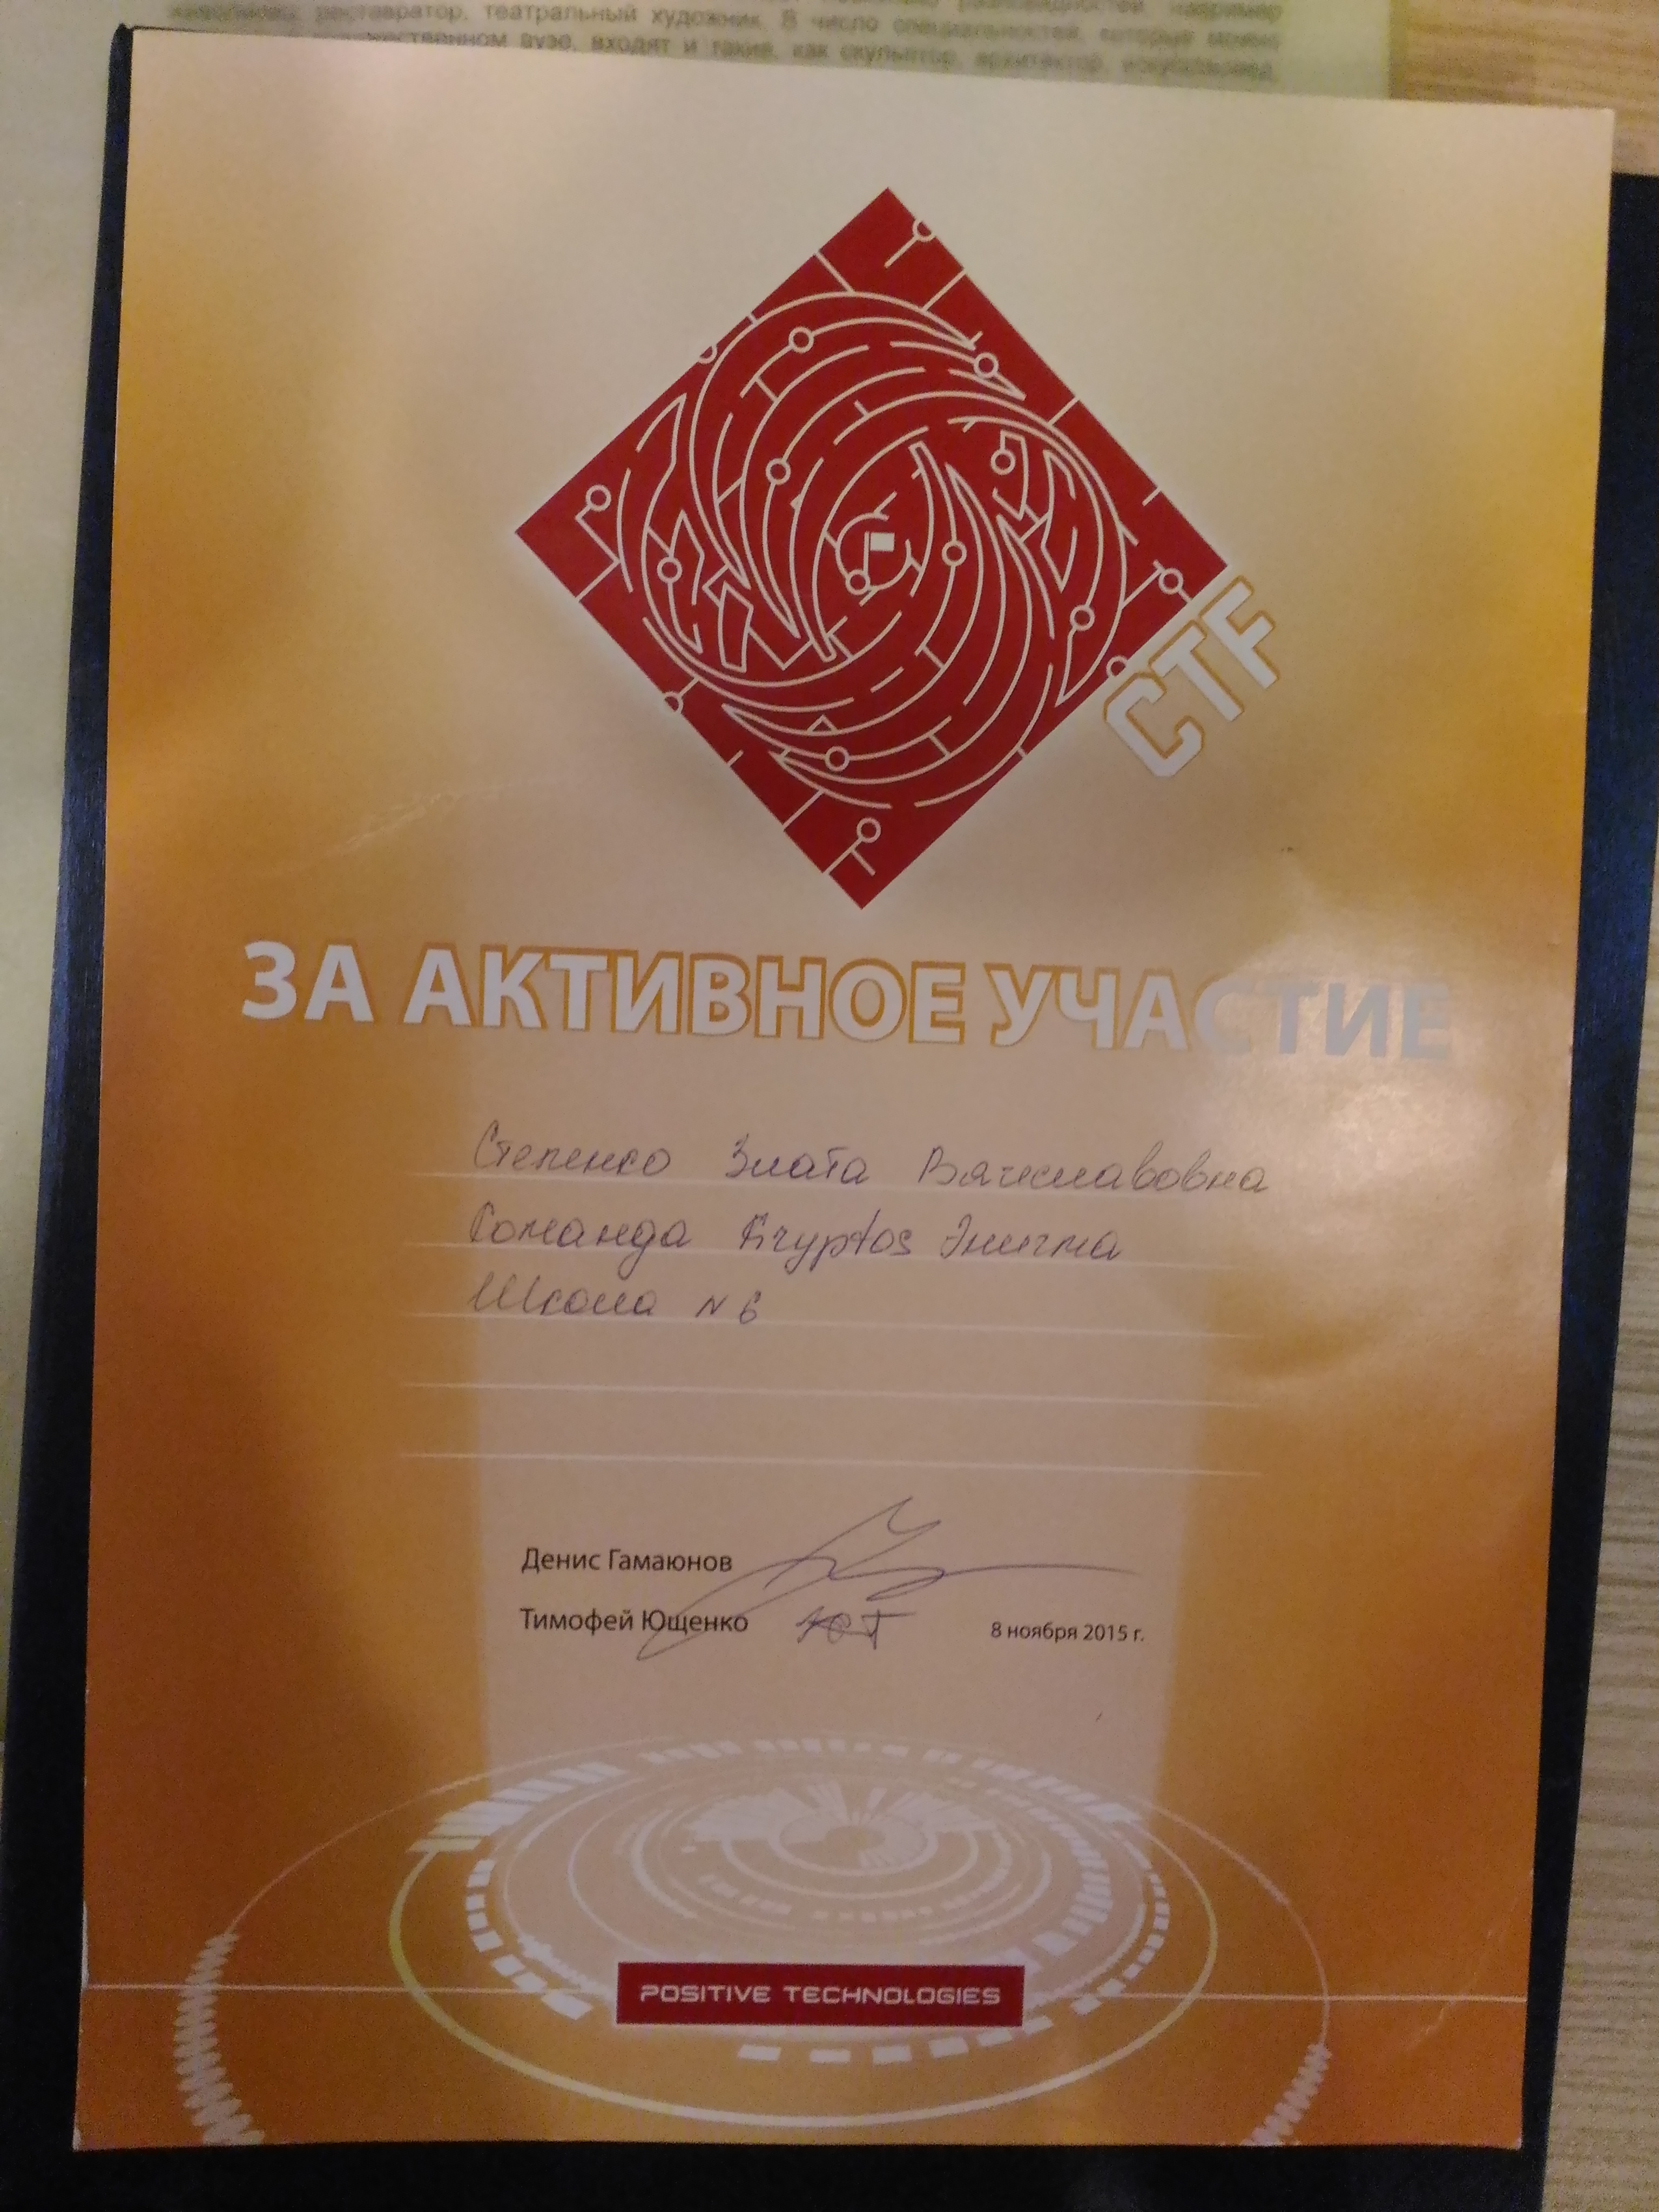 живописец, реставратор, театральный художник. В число специальностей, которые можно
вузе, входят и такие, как скульптор, архитектор, искусствовед,
CTF
ЗА АКТИВНОЕ УЧАСТИЕ
Степенко Злата Вячеславовна
Команда Kryptos Энигма
Школа N 6
Денис Гамаюнов
Тимофей Ющенко ЮТ
8 ноября 2015 г.
POSITIVE TECHNOLOGIES